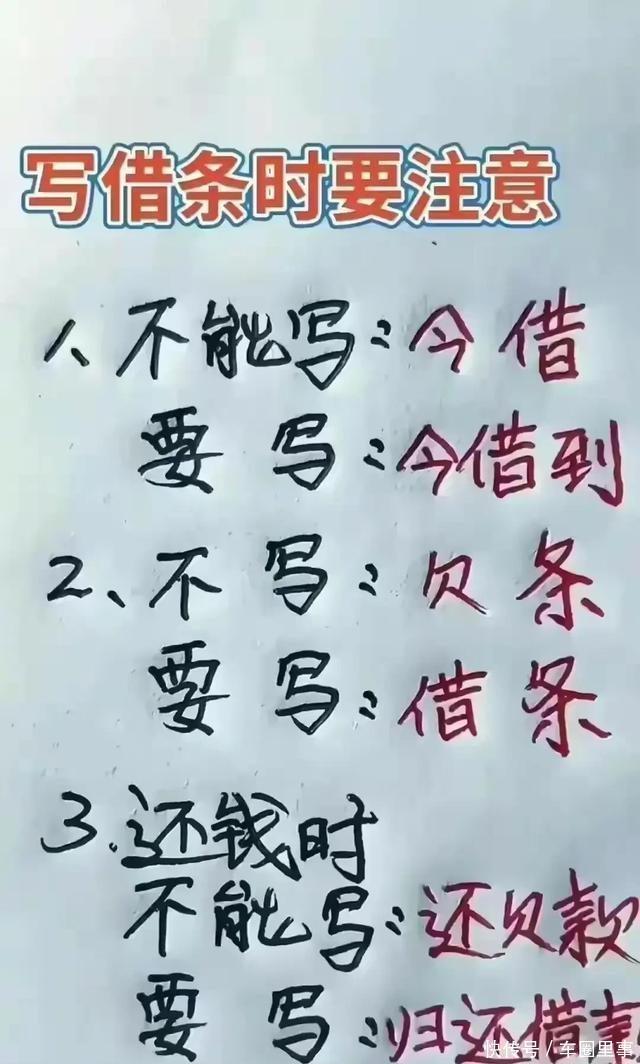 写借条时要注意
1、不能写:今借
要写:今借到
2、不写:欠条
要写:借条
3.还钱时
不能写:还欠款
要写:归还借款
快传号/车圈里事